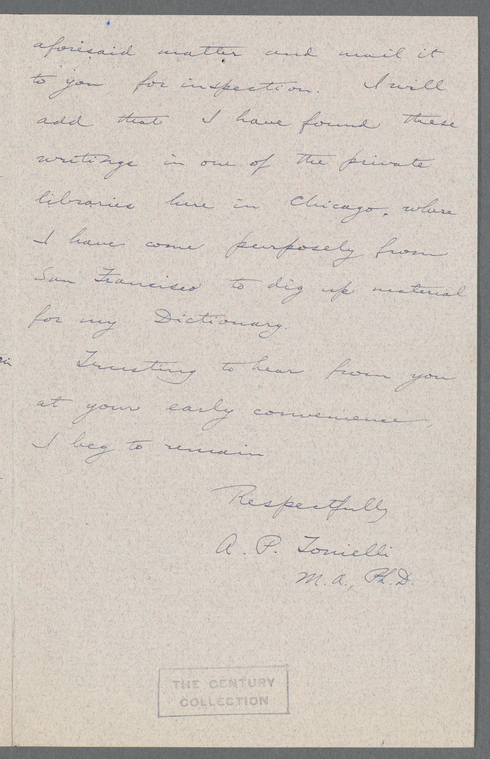 aforesaid matter and mail it
to you for inspection. I will
add that I have found these
writings in one of the private
libraries here in Chicago, where
I have come purposely from
San Francisco to dig up material
for my Dictionary.
Trusting to hear from you
at your early convenience,
I beg to remain
Respectfully
A. P. Tonielli
M.A., Ph.D.
THE CENTURY
COLLECTION